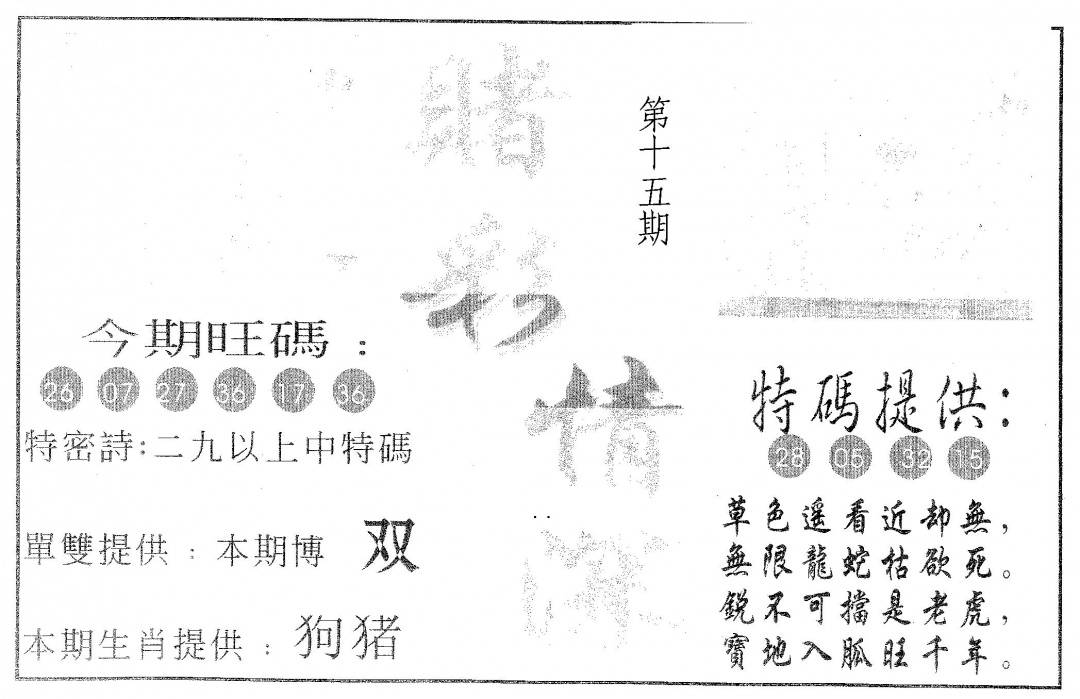 賭彩情深
第十五期
今期旺碼：
26 07 27 36 17 36
特密詩:二九以上中特碼
單雙提供：本期博 双
本期生肖提供：狗猪
特碼提供：
28 05 32 15
草色遥看近却無，
無限龍蛇枯欲死。
鋭不可擋是老虎，
寶地入胍旺千年。